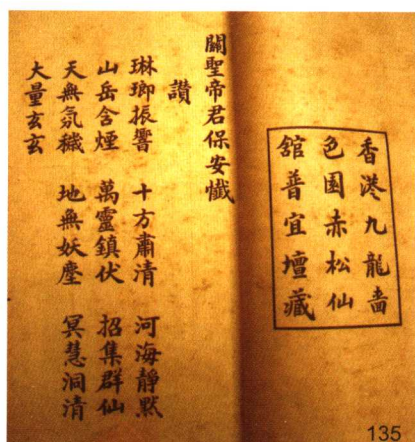 香港九龍嗇
色園赤松仙
舘普宜壇藏
關聖帝君保安懺
讚
琳瑯振響 十方肅清 河海靜默
山岳含煙 萬靈鎮伏 招集群仙
天無氛穢 地無妖塵 冥慧洞清
大量玄玄
135